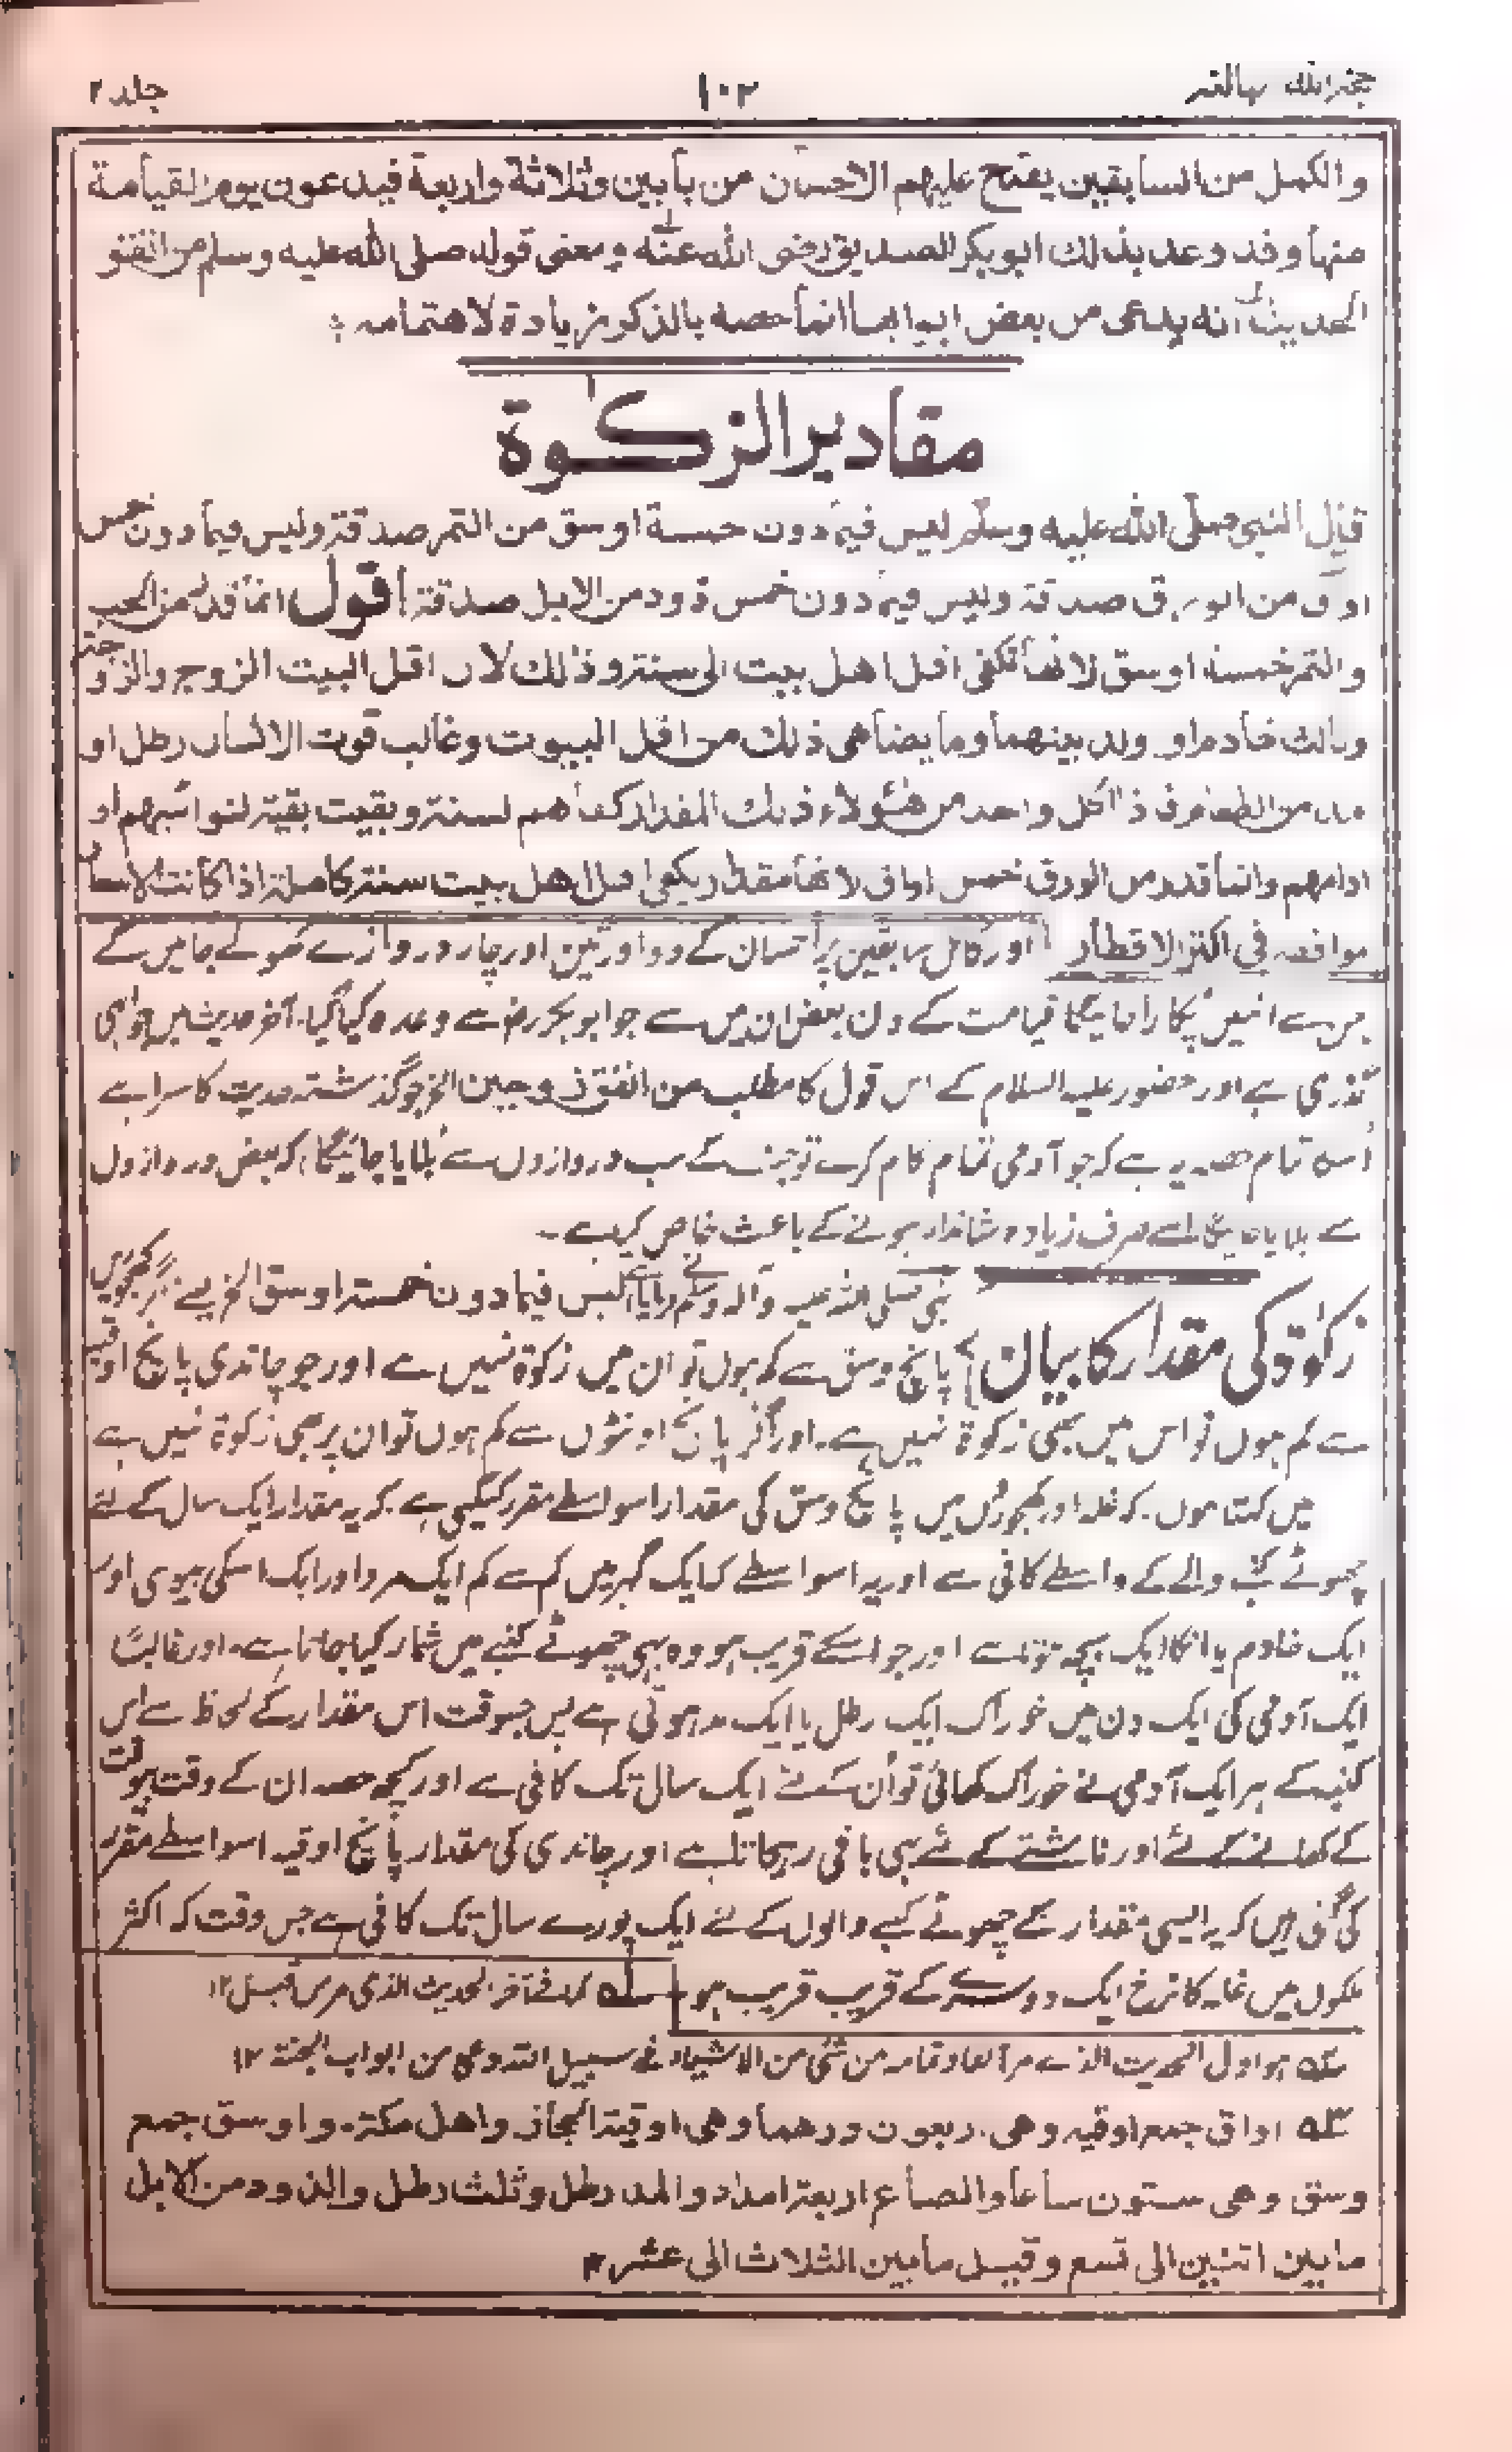 حجۃ اللہ البالغہ ۱۰۲ جلد ۲
والکمل من السابقین یفتح علیهم الاحسان من بابین وثلاثة واربعة فیدعون یوم القیامة
منها وقد وعد بذلك ابوبکر الصدیق رضی الله عنه ومعنی قوله صلی الله علیه وسلم من انفق
الحدیث انه یدعی من بعض ابوابها انما خصه بالذکر زیادة لاهتمامه
مقادیر الزکوة
قال النبی صلی الله علیه وسلم لیس فیما دون خمسة اوسق من التمر صدقة ولیس فیما دون خمس
اواق من الورق صدقة ولیس فیما دون خمس ذود من الابل صدقة اقول انما قدر من الحب
والتمر خمسة اوسق لانها تکفی اقل اهل بیت الی سنة وذلك لان اقل البیت الزوج والزوجة
وثالث خادم او ولد بینهما وما یضاهی ذلك من اقل البیوت وغالب قوت الانسان رطل او
مد من الطعام فاذا اکل واحد من هؤلاء ذلك المقدار کفاهم لسنة وبقیت بقیة لنوائبهم او
ادامهم وانما قدر من الورق خمس اواق لانها مقدار یکفی اقل اهل بیت سنة کاملة اذا کانت الاسعار
موافقة فی اکثر الاقطار اور کامل سابقین پر احسان کے دو اور تین اور چار دروازے کھولے جائیں گے
جن سے انہیں پکارا جائیگا قیامت کے دن بعض ان میں سے جو ابوبکر رض سے وعدہ کیا گیا۔ آخر حدیث میں جو ابھی
گذری ہے اور حضور علیہ السلام کے اس قول کا مطلب من انفق زوجین الخ جو گذشتہ حدیث کا سرا ہے
تمام حصہ یہ ہے کہ جو آدمی تمام کام کرے تو جنت کے سب دروازوں سے بلایا جائیگا، کہ بعض دروازوں
سے بلایا جائیگا اسے صرف زیادہ شاندار ہونے کے باعث خاص کیا ہے۔
نبی صلی اللہ علیہ وآلہ وسلم نے فرمایا ہے لیس فیما دون خمسة اوسق الخ یعنے اگر کھجوریں
زکوٰۃ کی مقدار کا بیان پانچ وسق سے کم ہوں تو ان میں زکوۃ نہیں ہے اور جو چاندی پانچ اوقیہ
سے کم ہوں تو اس میں بھی زکوۃ نہیں ہے۔ اور اگر پانچ اونٹوں سے کم ہوں تو ان پر بھی زکوۃ نہیں ہے
میں کہتا ہوں۔ کہ غلہ اور کھجوروں میں پانچ وسق کی مقدار اسواسطے مقرر کیگئی ہے۔ کہ یہ مقدار ایک سال کے لئے
چھوٹے کنبے والے کے واسطے کافی ہے اور یہ اسواسطے کہ ایک گہر میں کم سے کم ایک مرد اور ایک اسکی بیوی اور
ایک خادم یا انکا ایک بچہ ہوتا ہے اور جو اسکے قریب ہو وہ بہی چھوٹے کنبے میں شمار کیا جاتا ہے۔ اور غالبًا
ایک آدمی کی ایک دن میں خوراک ایک رطل یا ایک مد ہوتی ہے پس جسوقت اس مقدار کے لحاظ سے اس
کنبہ کے ہر ایک آدمی نے خوراک کھائی تو ان کے لئے ایک سال تک کافی ہے اور کچھ حصہ ان کے وقت بیوقت
کے کھانے کے لئے اور ناشتے کے لئے بہی باقی رہجاتا ہے اور چاندی کی مقدار پانچ اوقیہ اسواسطے مقرر
کی گئی ہیں کہ یہ ایسی مقدار ہے چھوٹے کنبے والوں کے لئے ایک پورے سال تک کافی ہے جس وقت کہ اکثر
ملکوں میں غلہ کا نرخ ایک دوسرے کے قریب قریب ہو۔ ۱ه کما فی آخر الحدیث الذی مر من قبل ۱۲
۲ه ہو اول الحدیث الذی مر آنفا وتمامہ من شئ من الاشیاء فی سبیل اللہ دعی من ابواب الجنة ۱۲
۳ه اواق جمع اوقیہ وهی اربعون درهما وهی اوقیة الحجاز واهل مکة۔ واوسق جمع
وسق وهی ستون صاعا والصاع اربعة امداد والمد رطل وثلث رطل والذود من الابل
ما بین اثنین الی تسع وقیل ما بین الثلاث الی عشر